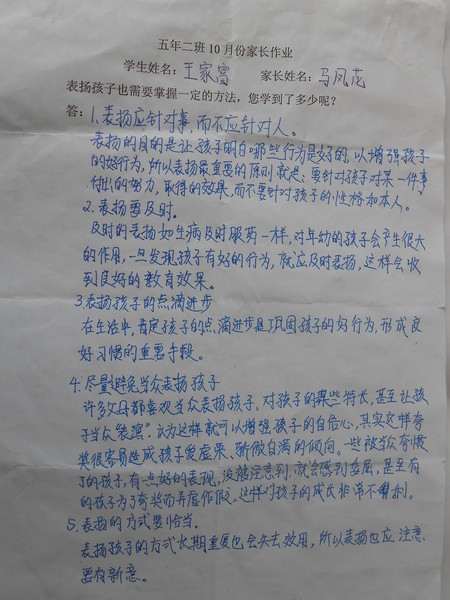 五年二班10月份家长作业
学生姓名：王家富 家长姓名：马凤花
表扬孩子也需要掌握一定的方法，您学到了多少呢？
答：1.表扬应针对事，而不应针对人。
表扬的目的是让孩子明白哪些行为是好的，以增强孩子
的好行为，所以表扬最重要的原则就是：要针对孩子对某一件事
付出的努力，取得的效果，而不要针对孩子的性格和本人。
2.表扬要及时.
及时的表扬如生病及时服药一样，对年幼的孩子会产生很大
的作用，一旦发现孩子有好的行为，就应及时表扬，这样会收
到良好的教育效果。
3.表扬孩子的点滴进步
在生活中，肯定孩子的点滴进步是巩固孩子的好行为，形成良
好习惯的重要手段。
4.尽量避免当众表扬孩子
许多父母都喜欢当众表扬孩子，对孩子的某些特长，甚至让孩
子当众“表演”.认为这样就可以增强孩子的自信心，其实这样夸
奖很容易造成孩子爱虚荣、骄傲自满的倾向。一些被当众夸惯
了的孩子，有一点好的表现，没被注意到，就会感到委屈，甚至有
的孩子为了夸奖而弄虚作假，这样对孩子的成长非常不利。
5.表扬的方式要恰当.
表扬孩子的方式长期重复也会失去效用，所以表扬也应注意
要有新意。